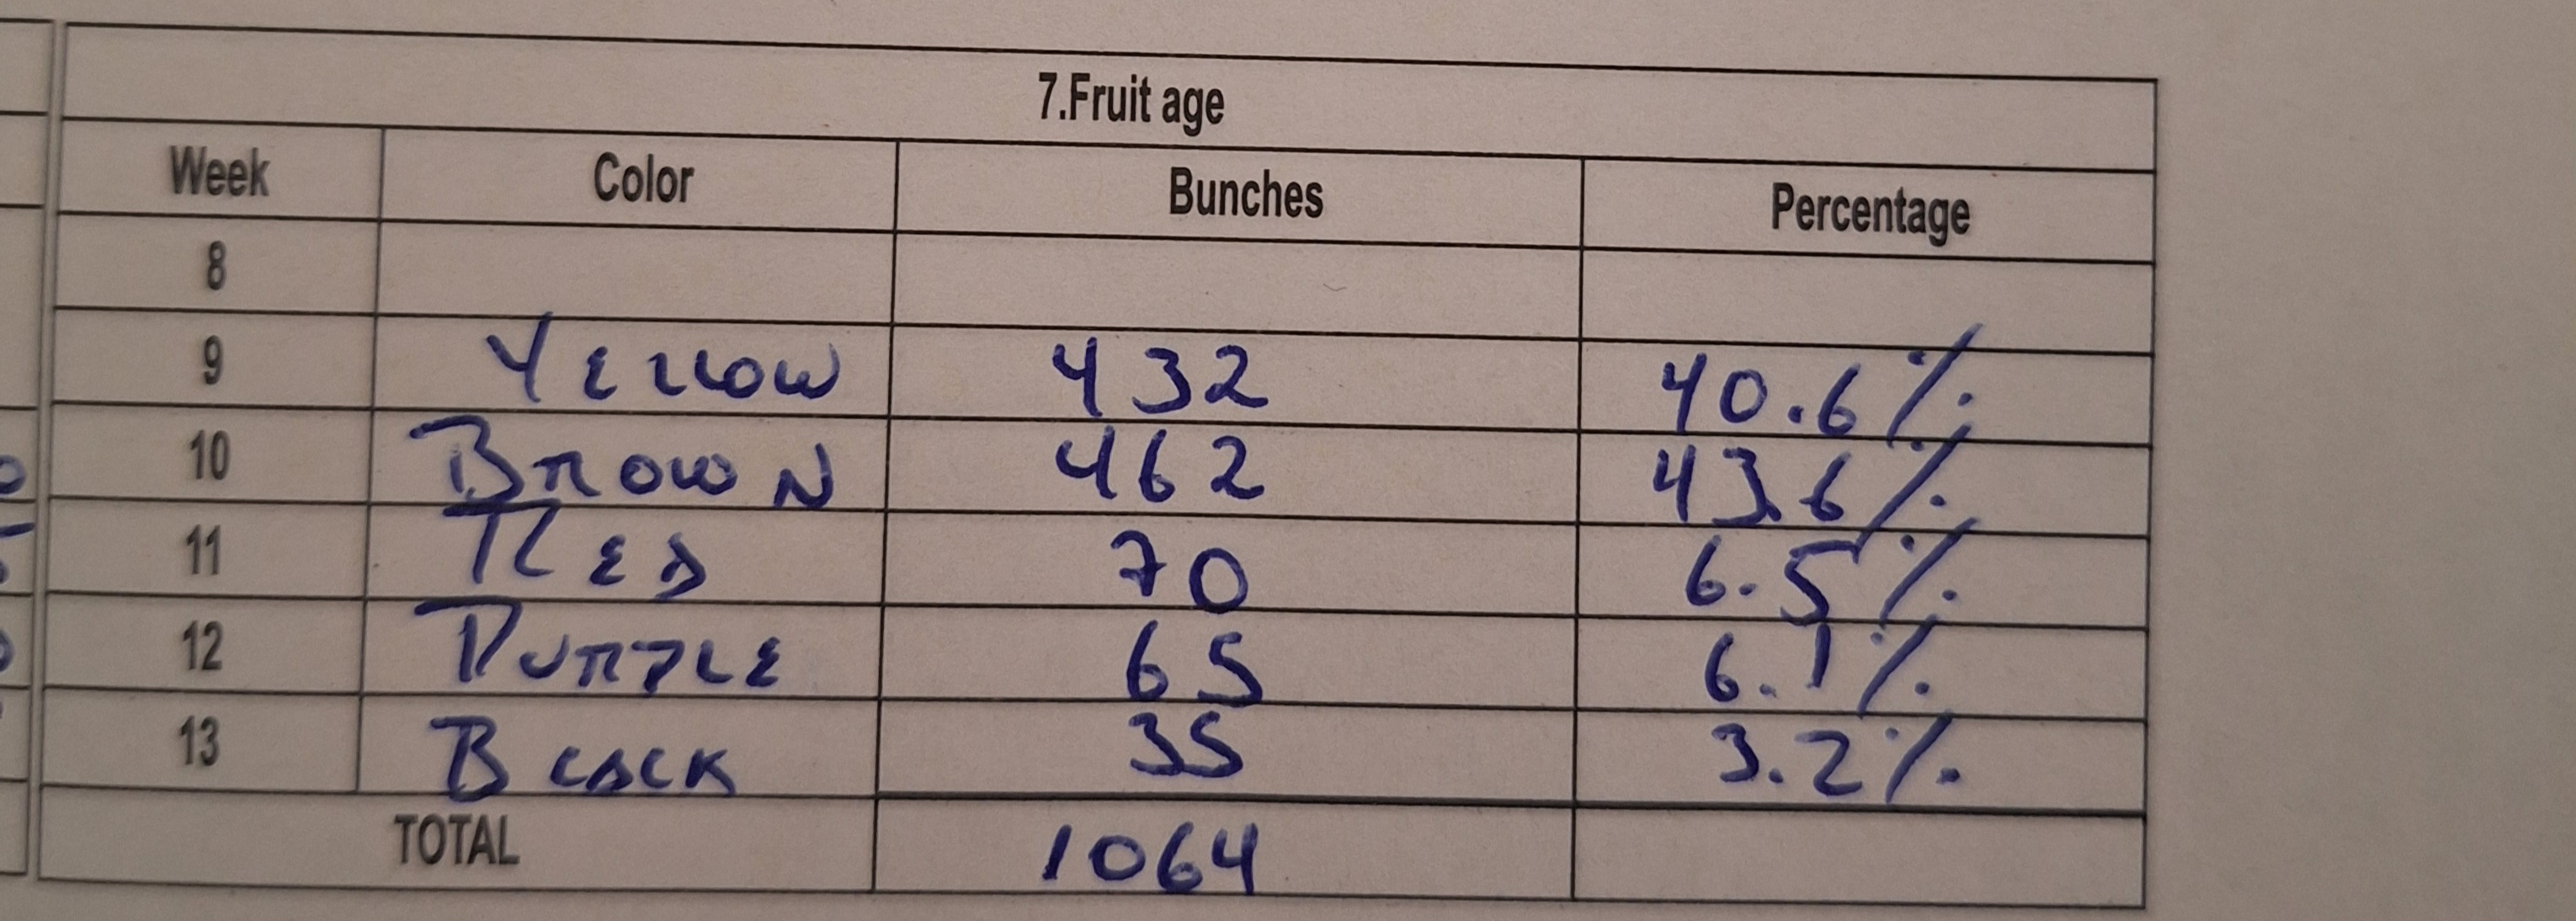 7.Fruit age
Week Color Bunches Percentage
8
9 YELLOW 432 40.6%
10 BROWN 462 43.6%
11 RED 70 6.5%
12 PURPLE 65 6.1%
13 BLACK 35 3.2%
TOTAL 1064